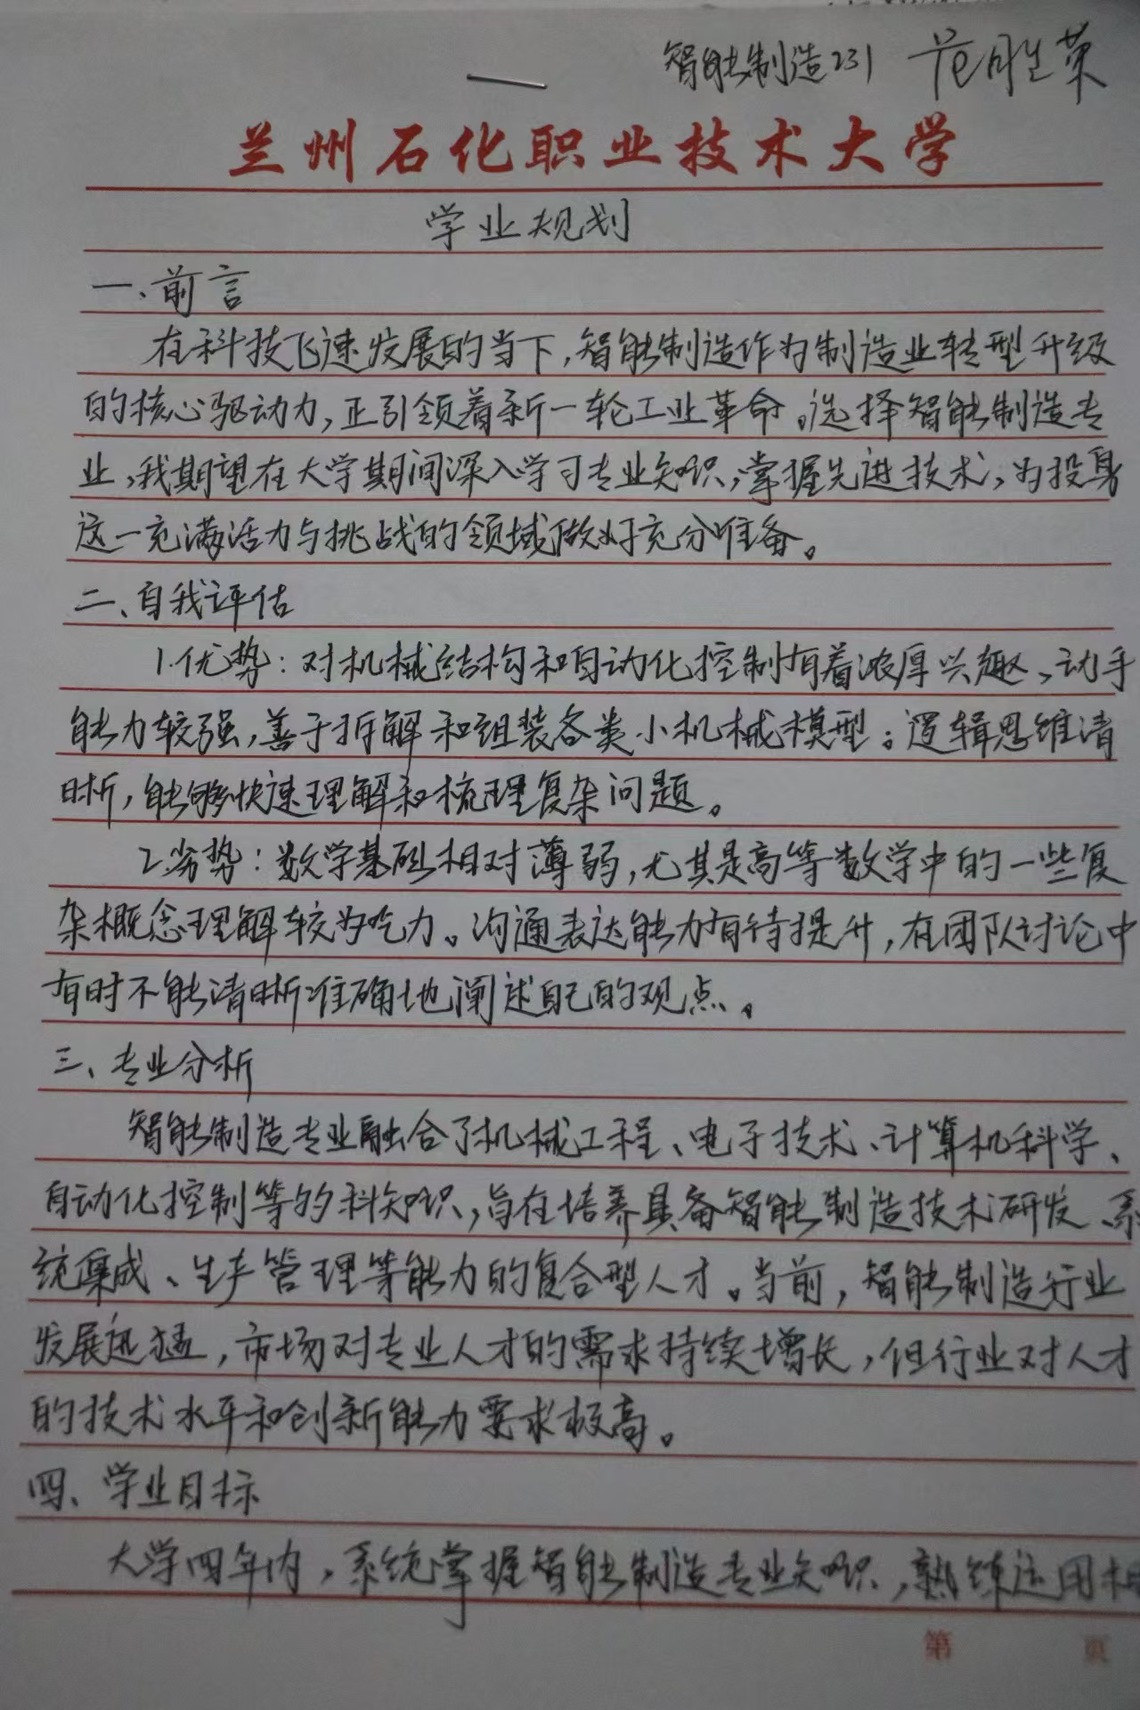 智能制造231 范胜荣
兰州石化职业技术大学
学业规划
一、前言
在科技飞速发展的当下,智能制造作为制造业转型升级
的核心驱动力,正引领着新一轮工业革命。选择智能制造专
业,我期望在大学期间深入学习专业知识,掌握先进技术,为投身
这一充满活力与挑战的领域做好充分准备。
二、自我评估
1.优势:对机械结构和自动化控制有着浓厚兴趣,动手
能力较强,善于拆解和组装各类小机械模型。逻辑思维清
晰,能够快速理解和梳理复杂问题。
2.劣势:数学基础相对薄弱,尤其是高等数学中的一些复
杂概念理解较为吃力。沟通表达能力有待提升,在团队讨论中
有时不能清晰准确地阐述自己的观点。
三、专业分析
智能制造专业融合了机械工程、电子技术、计算机科学、
自动化控制等多科知识,旨在培养具备智能制造技术研发、系
统集成、生产管理等能力的复合型人才。当前,智能制造行业
发展迅猛,市场对专业人才的需求持续增长,但行业对人才
的技术水平和创新能力要求极高。
四、学业目标
大学四年内,系统掌握智能制造专业知识,熟练运用
第 页